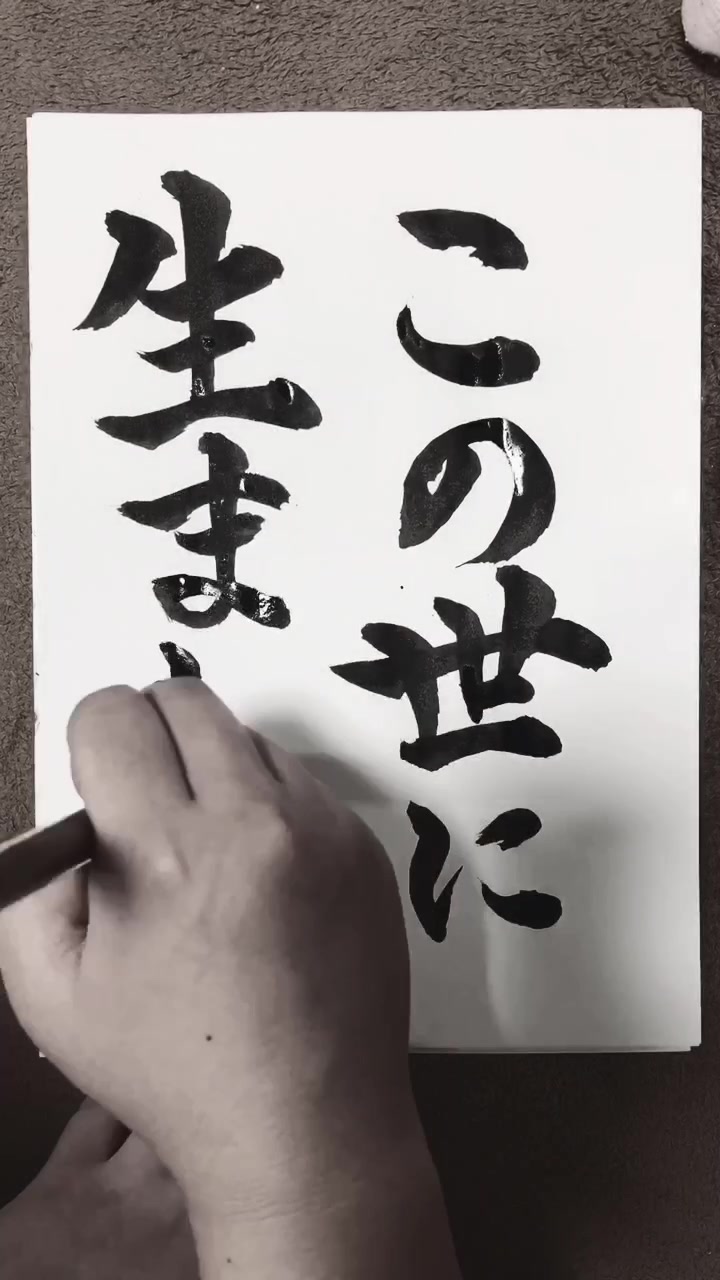 この世に
生ま